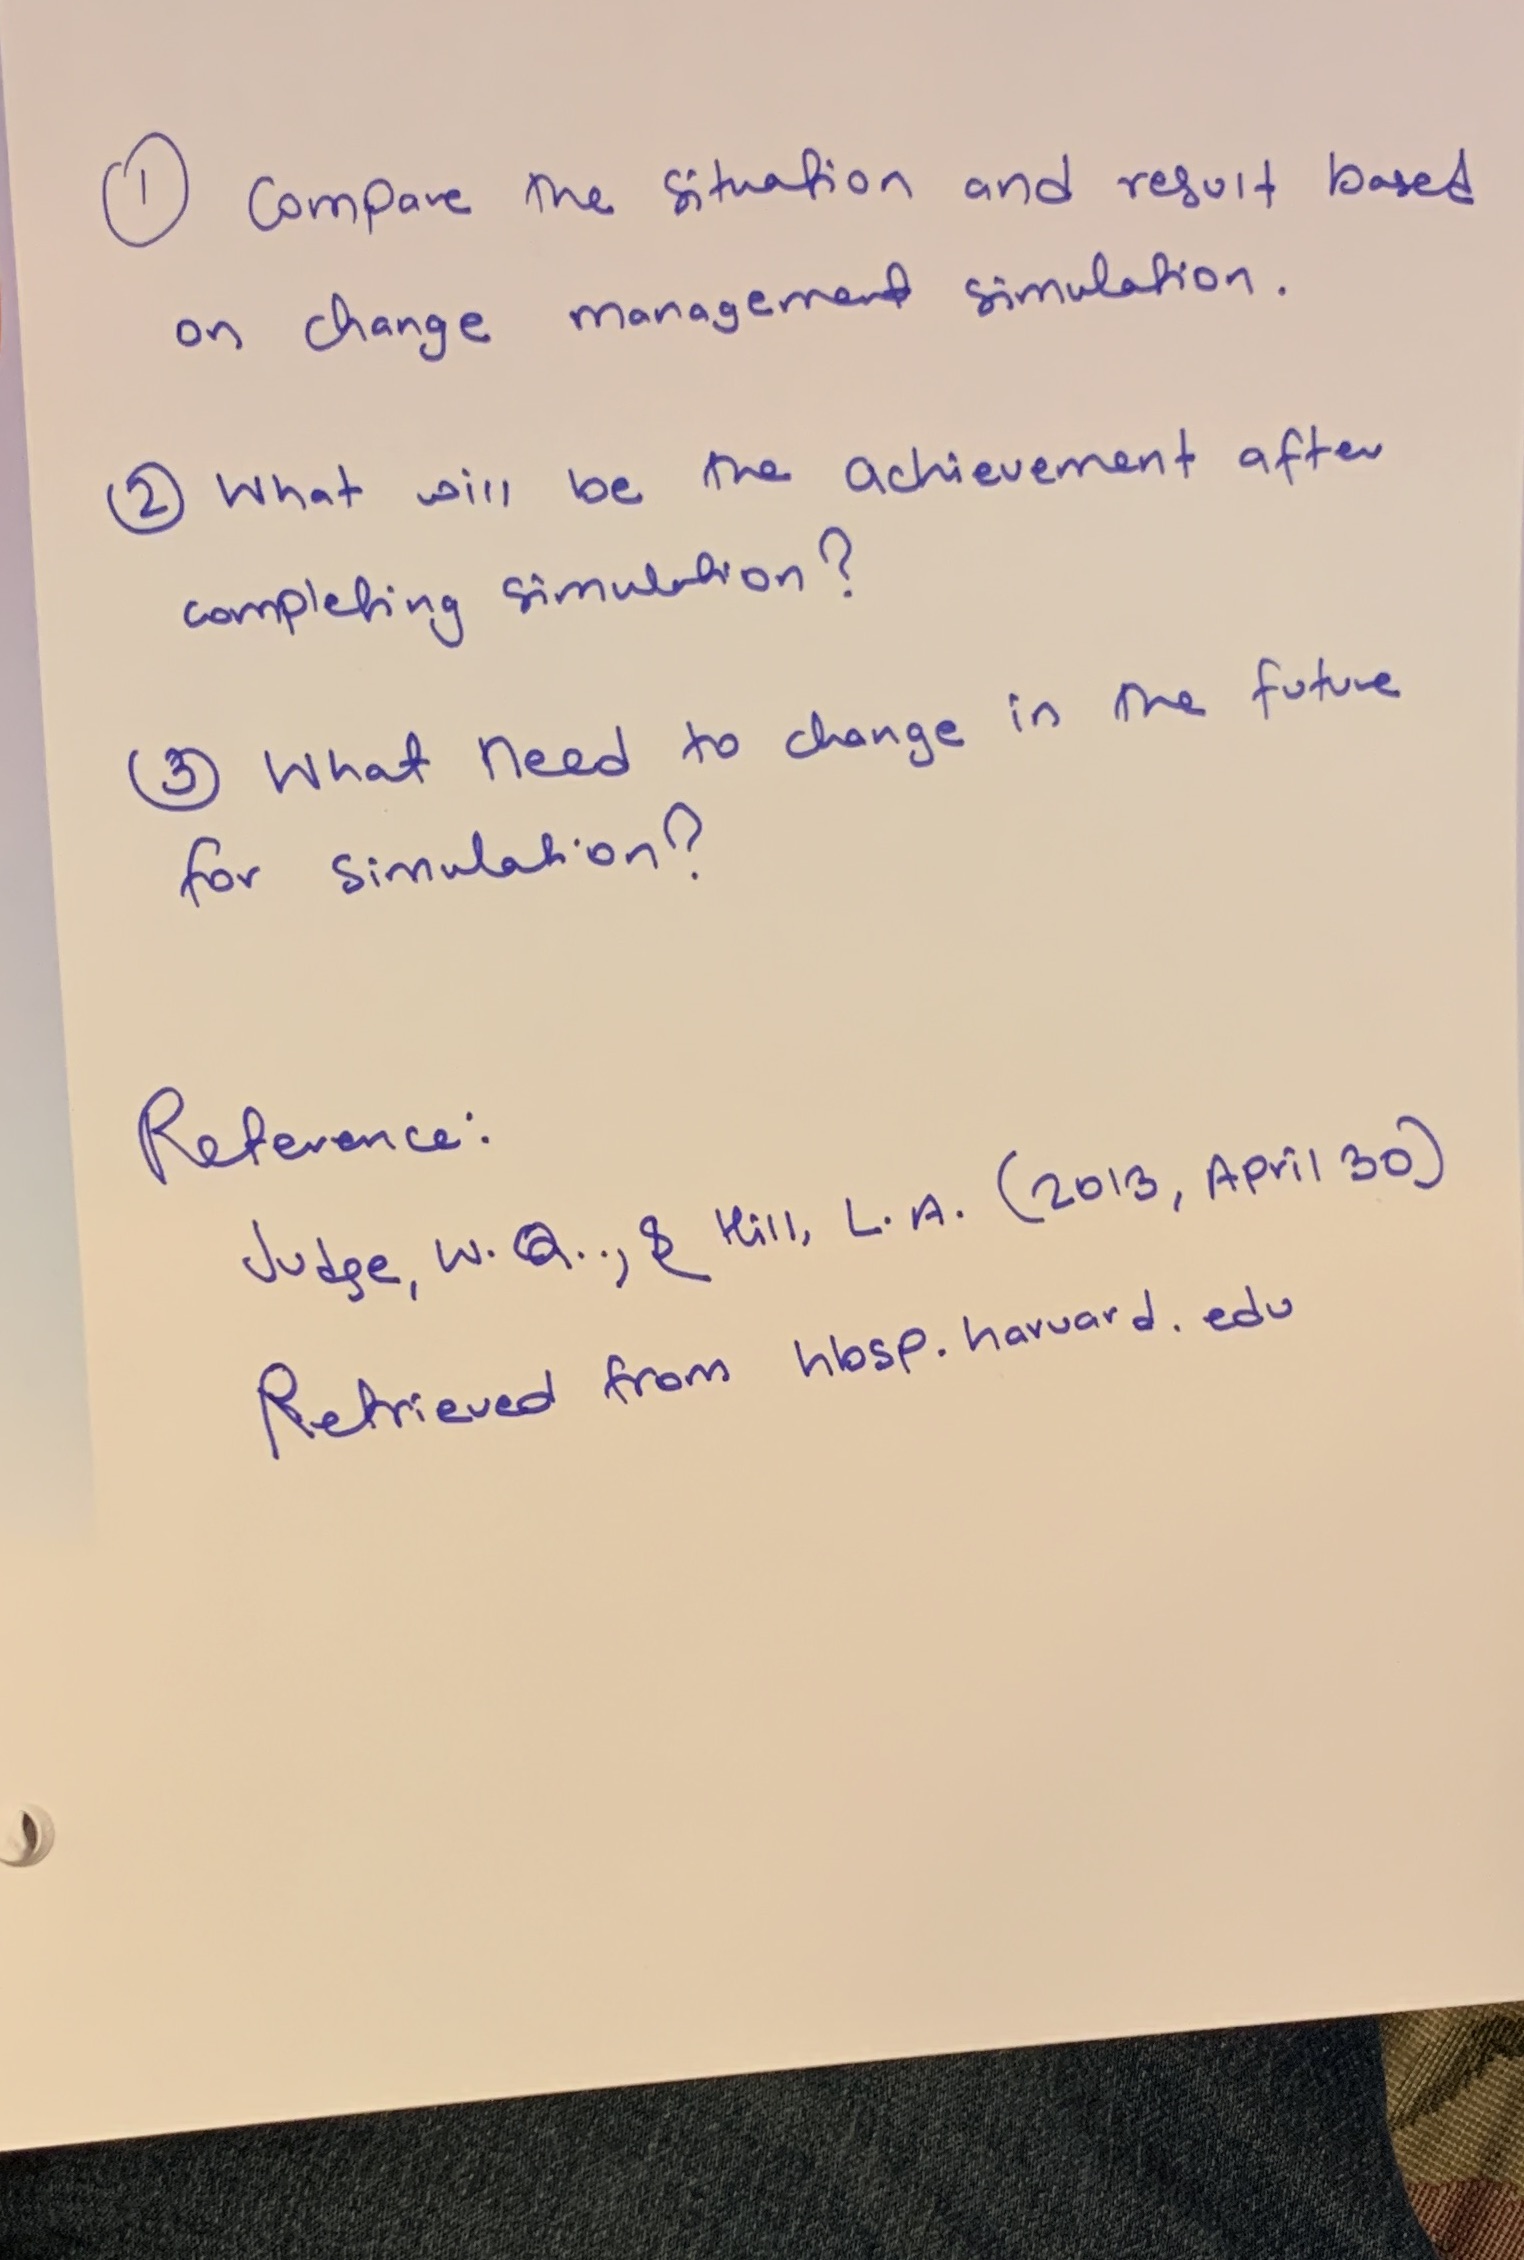 ① Compare the situation and result based
on change management simulation.
② What will be the achievement after
completing simulation?
③ What need to change in the future
for simulation?
Reference:
Judge, W. Q.., & Hill, L. A. (2013, April 30)
Retrieved from hbsp.harvard.edu